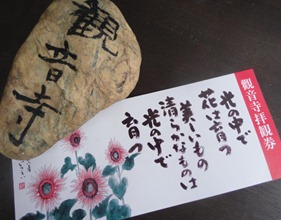 観音寺
觀音寺拝観券
光の中で
花は育つ
美しいもの
清らかなものは
光の中で
育つ